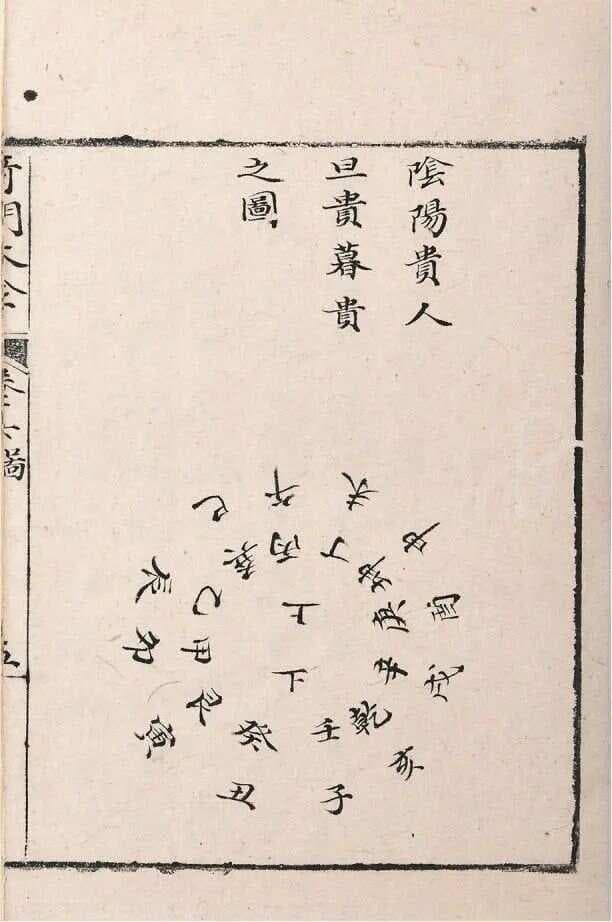 陰陽貴人
旦貴暮貴
之圖
巳
午
未
申
戌
亥
子
丑
寅
卯
辰
巽
丙
丁
坤
庚
辛
乾
壬
癸
艮
甲
乙
上
下